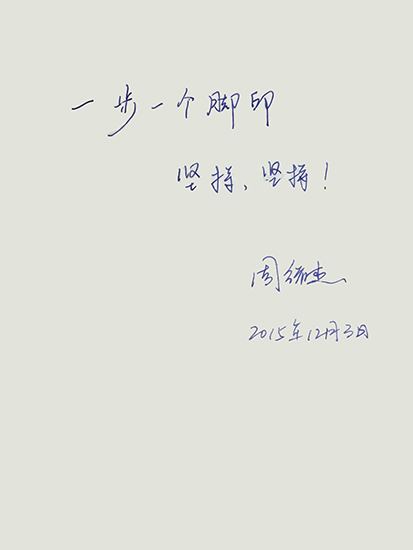 一步一个脚印
坚持、坚持！
周
2015年12月3日